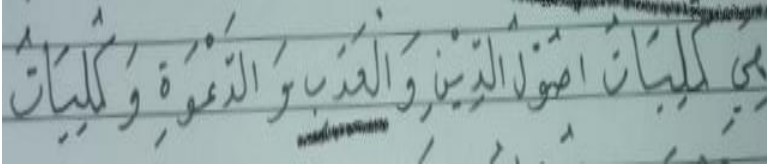 هِيَ كُلِيَاتُ اصُوْلُ الدِّيْنِ وَالْعَرَبِ وَ الدَّعْوَةِ وَ كُلِيَاتُ